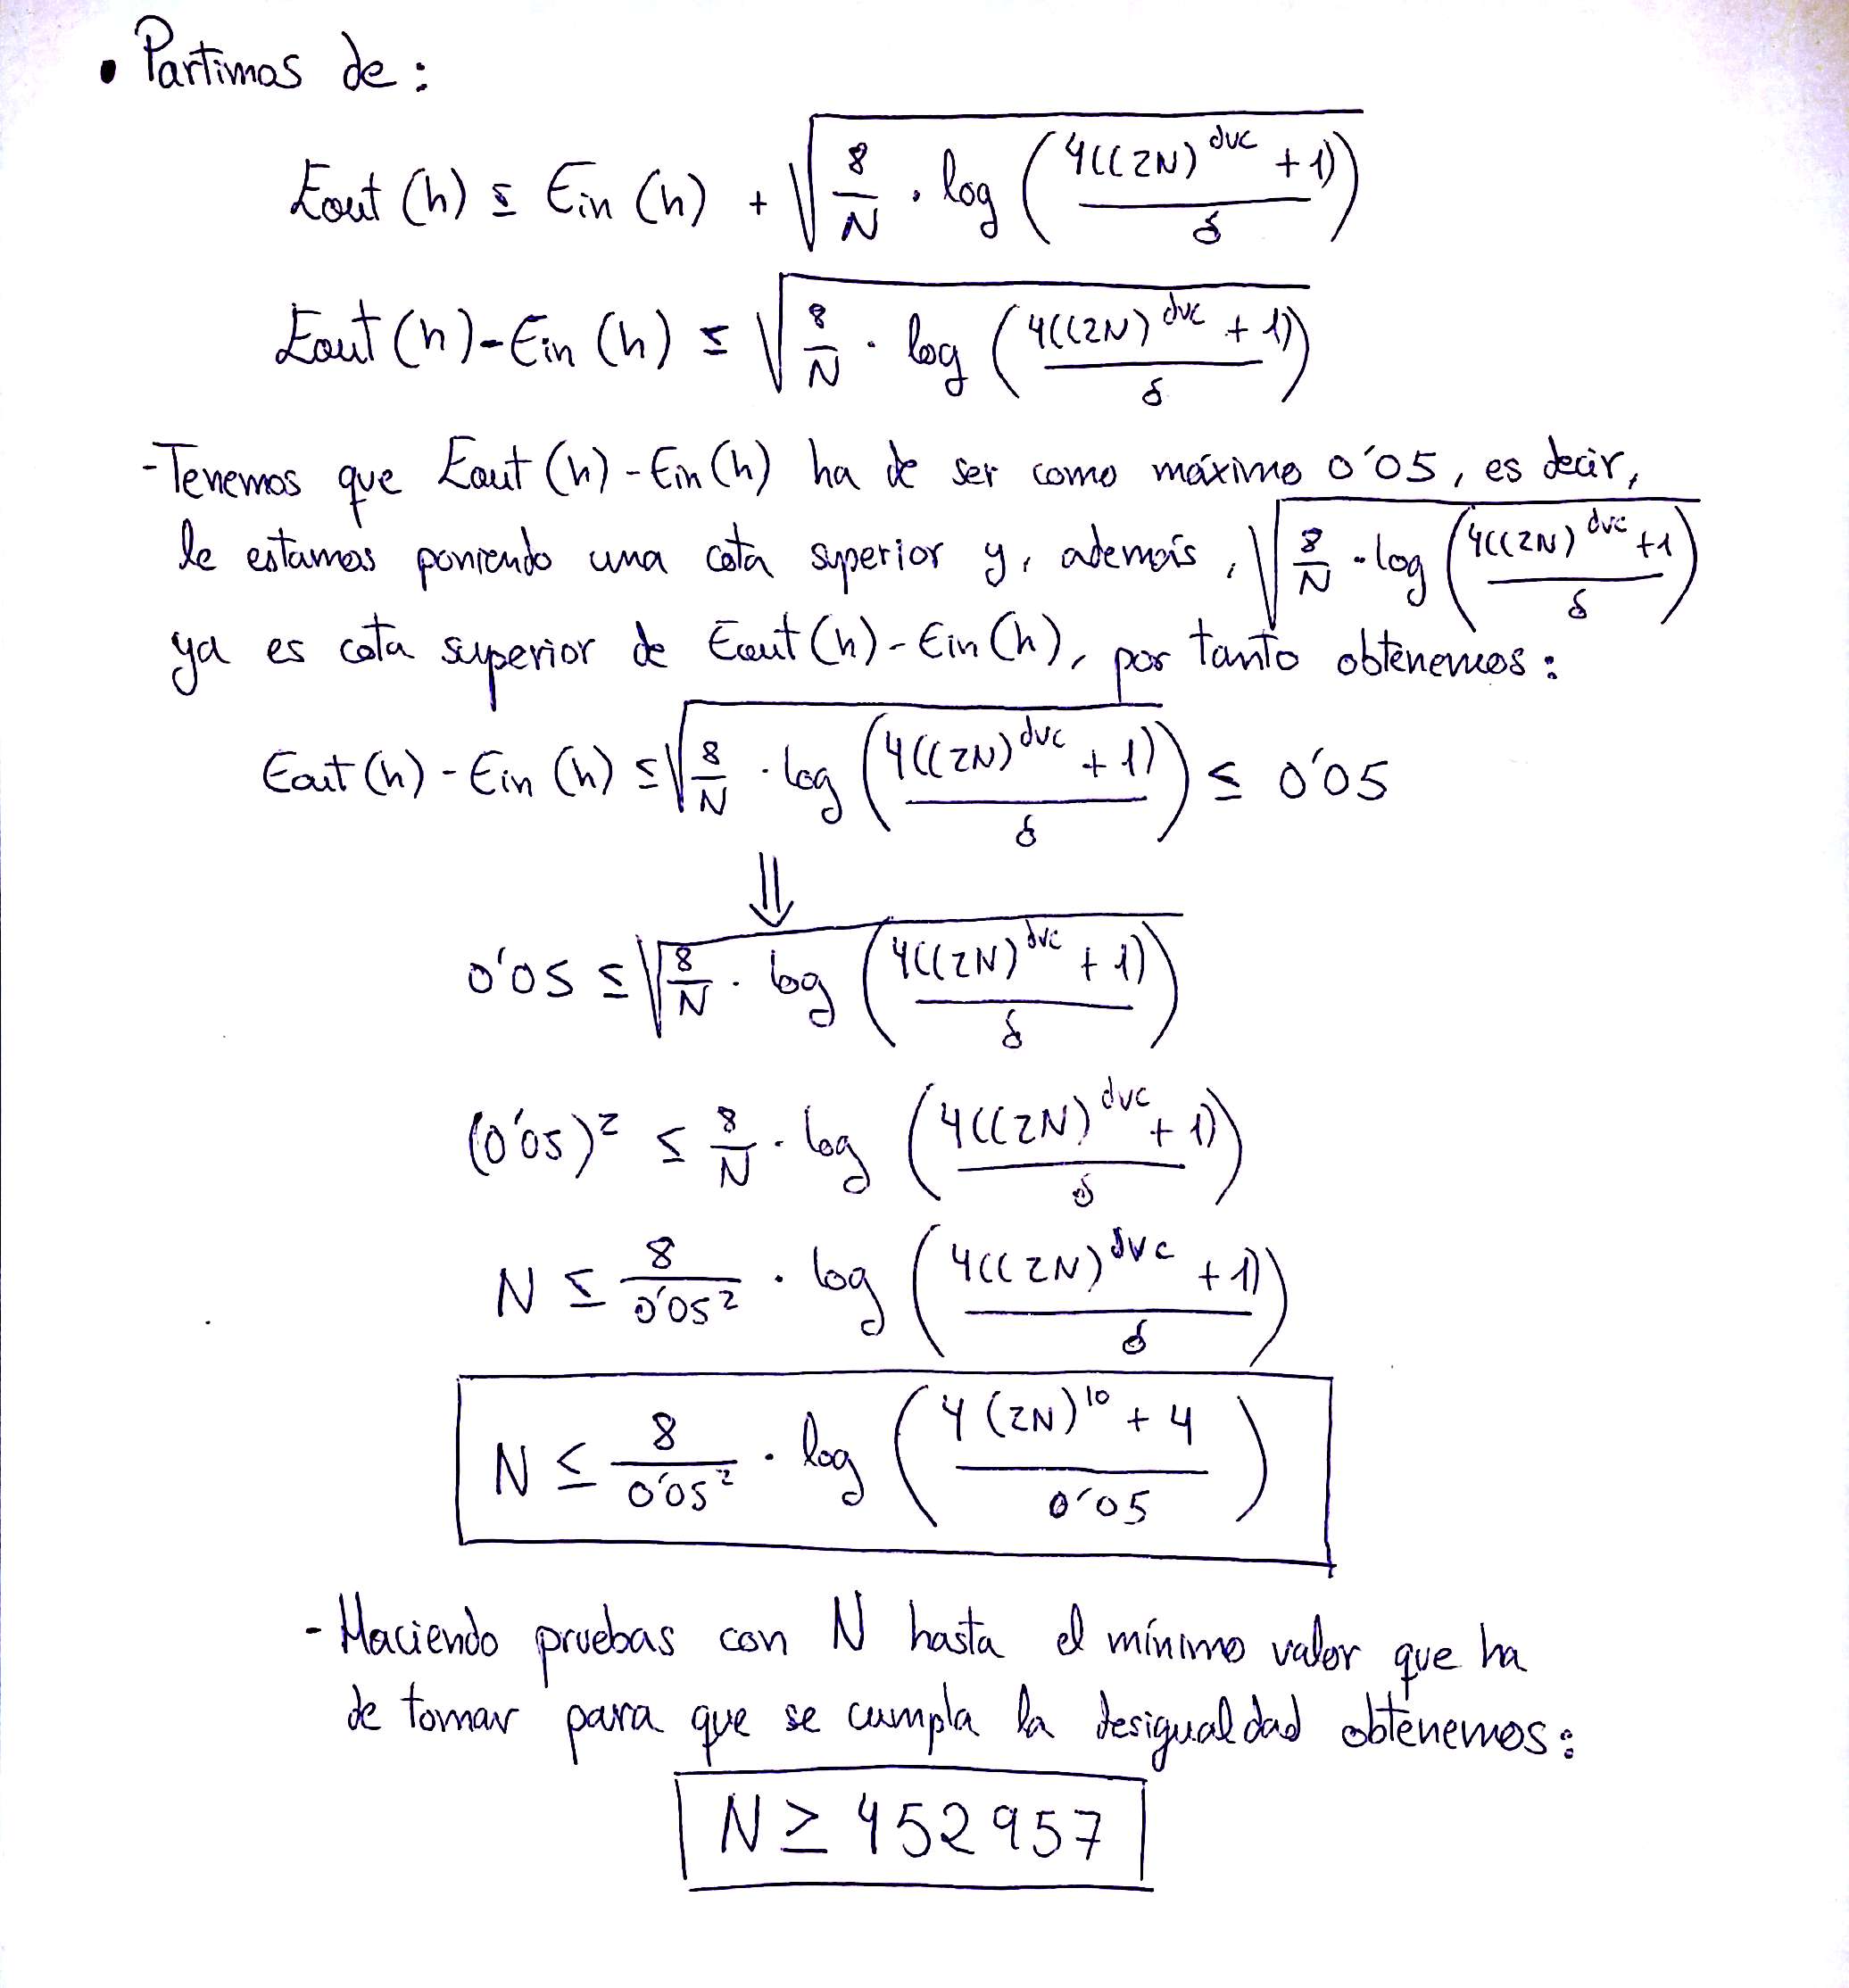 • Partimos de:
Eout (h) ≤ Ein (h) + √(8/N · log (4((2N)^dvc + 1)/δ))
Eout (h) - Ein (h) ≤ √(8/N · log (4((2N)^dvc + 1)/δ))
- Tenemos que Eout (h) - Ein (h) ha de ser como máximo 0'05, es decir,
le estamos poniendo una cota superior y, además, √(8/N · log (4((2N)^dvc + 1/δ))
ya es cota superior de Eout (h) - Ein (h), por tanto obtenemos:
Eout (h) - Ein (h) ≤ √(8/N · log (4((2N)^dvc + 1)/δ)) ≤ 0'05
⇓
0'05 ≤ √(8/N · log (4((2N)^dvc + 1)/δ))
(0'05)² ≤ 8/N · log (4((2N)^dvc + 1)/δ)
N ≤ 8/0'05² · log (4((2N)^dvc + 1)/δ)
N ≤ 8/0'05² · log (4 (2N)^10 + 4/0'05)
- Haciendo pruebas con N hasta el mínimo valor que ha
de tomar para que se cumpla la desigualdad obtenemos:
N ≥ 452957